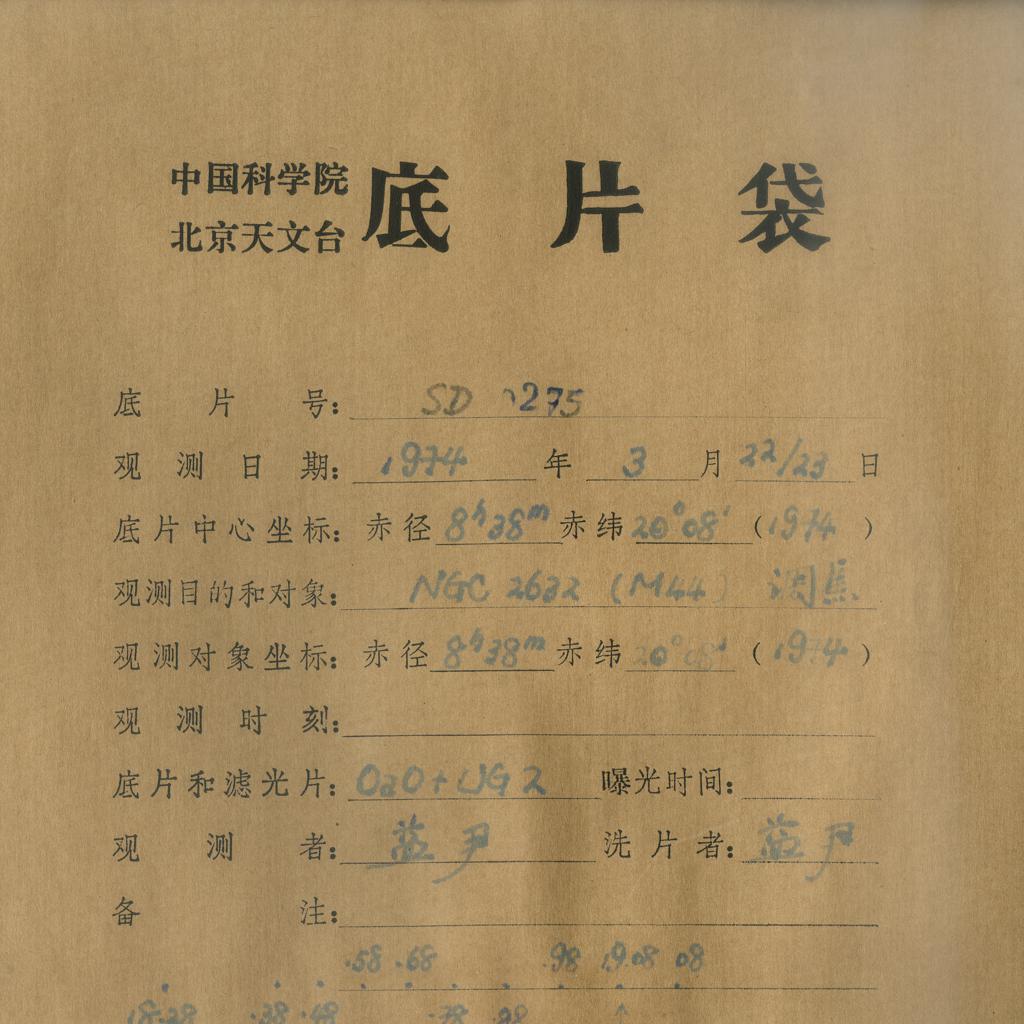 中国科学院
北京天文台
底片袋
底片号: SD 0275
观测日期: 1974 年 3 月 22/23 日
底片中心坐标: 赤径 8h38m 赤纬 20°08′ (1974)
观测目的和对象: NGC 2632 (M44) 调焦
观测对象坐标: 赤径 8h38m 赤纬 20°08′ (1974)
观测时刻:
底片和滤光片: OaO+UG2 曝光时间:
观测者: 蓝尹 洗片者: 蓝尹
备注:
.58 .68 .98 19.08 08
18.28 .38 .48 .78 .88